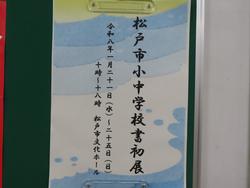 松戸市小中学校書初展
令和八年一月二十一日(水)~二十五日(日)
十時~十八時 松戸市文化ホール